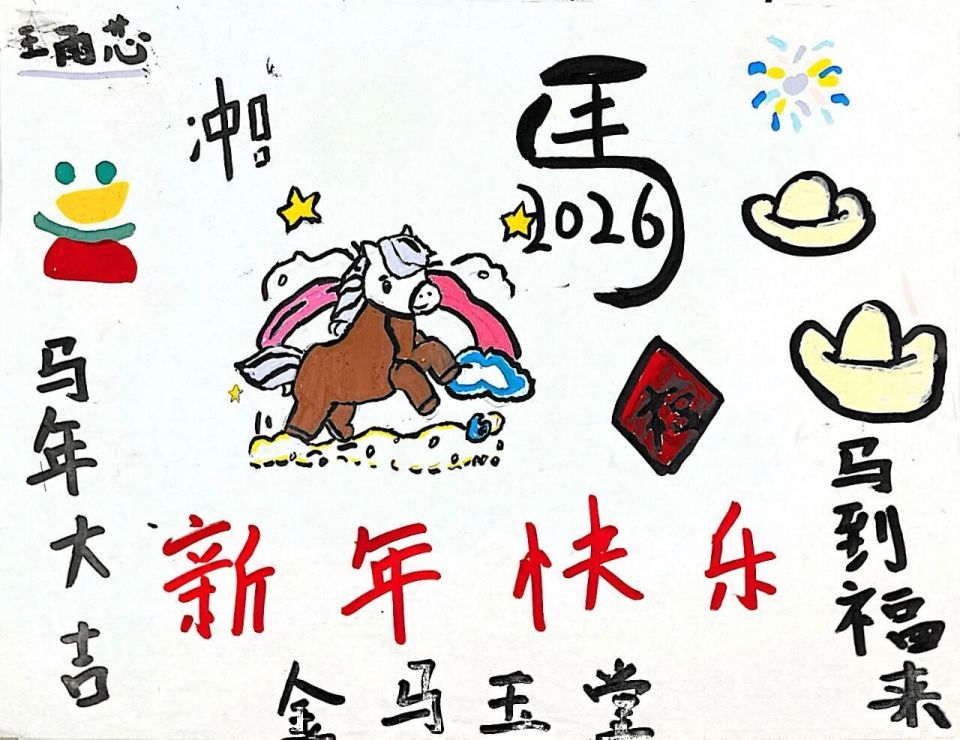 王雨芯
冲
马
2026
马年大吉
马到福来
新年快乐
金马玉堂